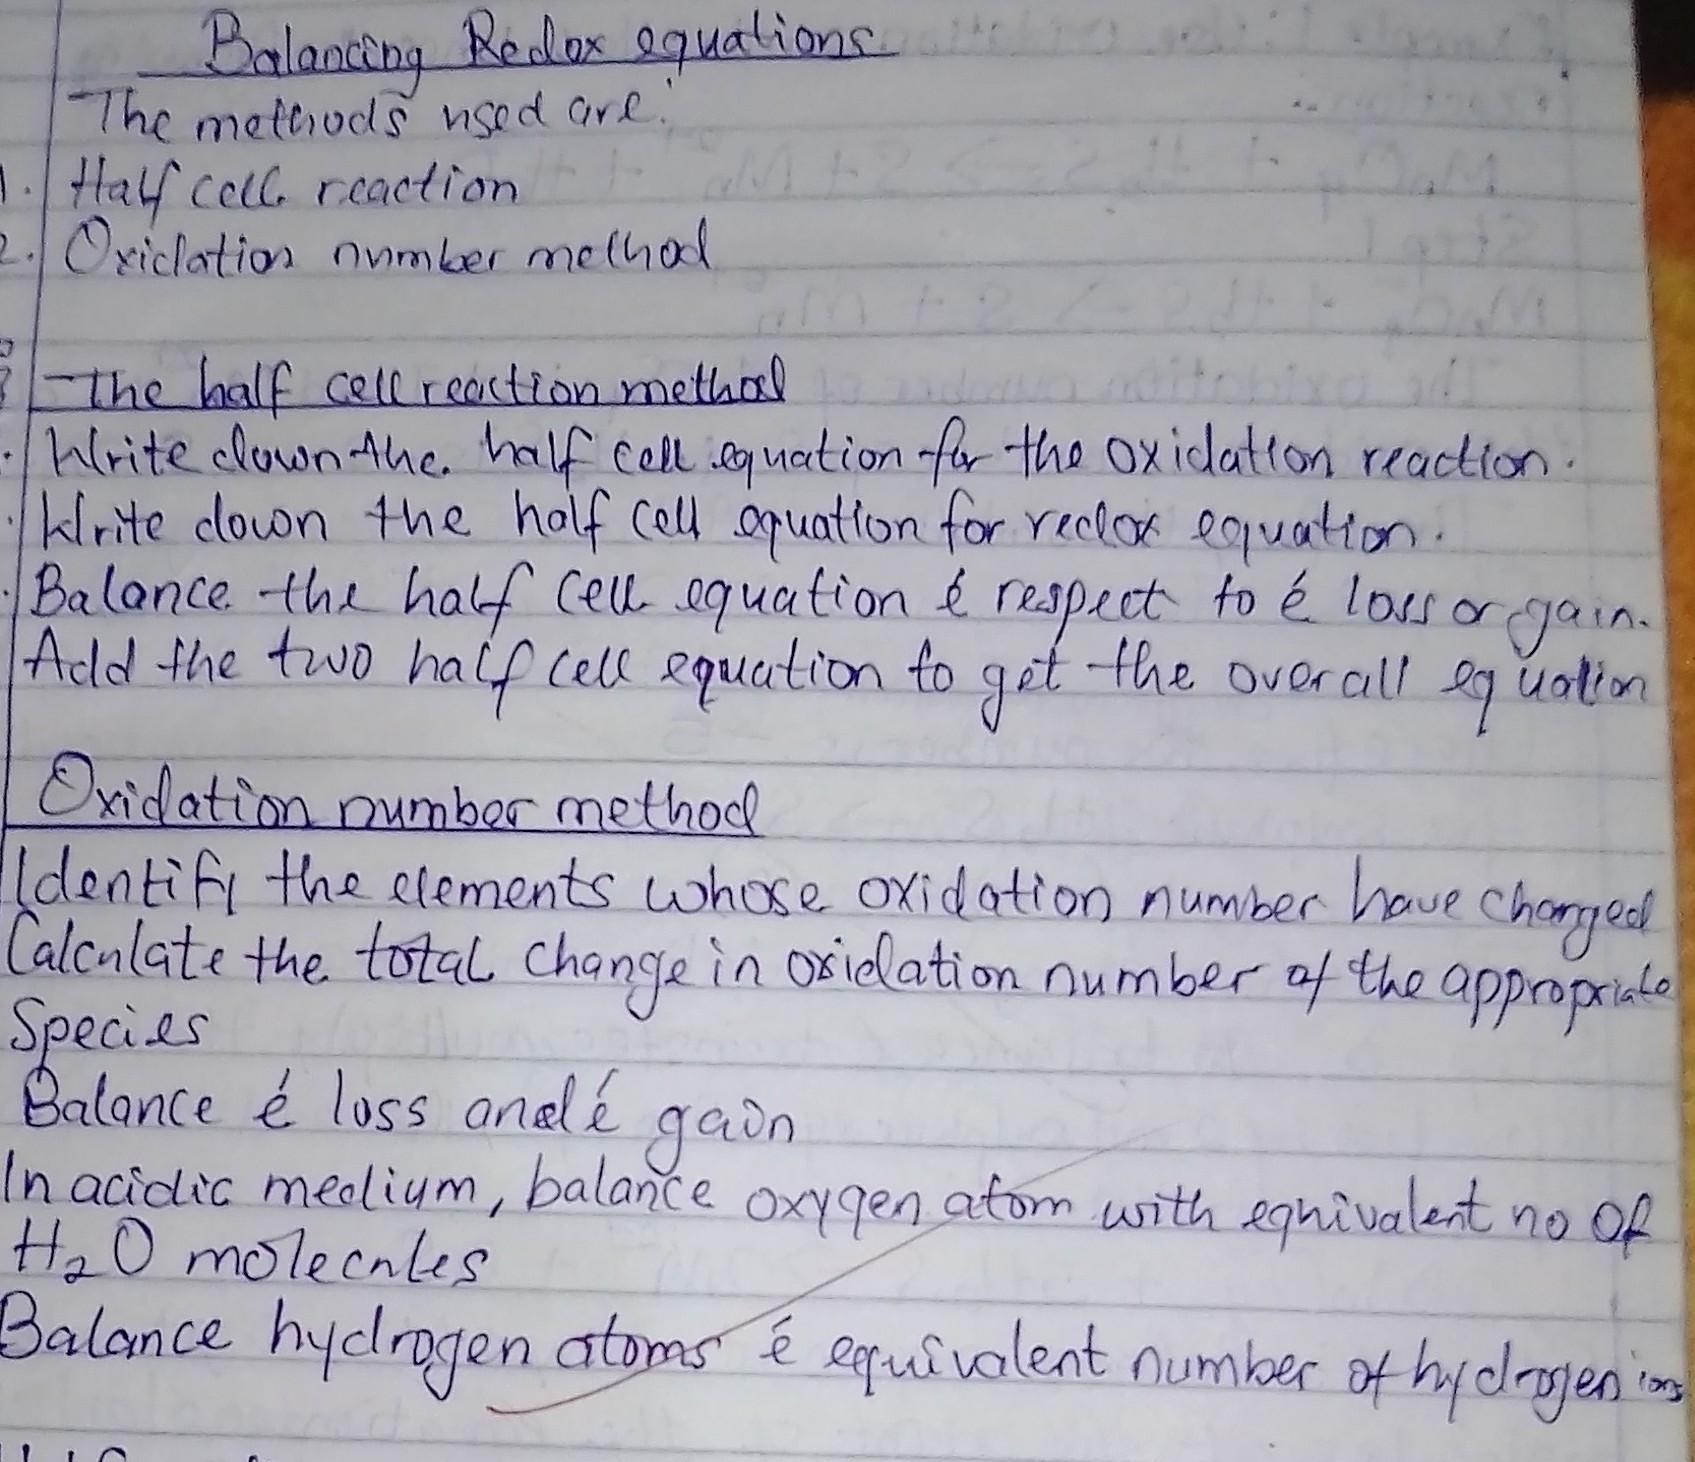 Balancing Redox equations
The methods used are:
1. Half cell reaction
2. Oxidation number method
The half cell reaction method
. Write down the half cell equation for the oxidation reaction.
. Write down the half cell equation for redox equation.
. Balance the half cell equation é respect to é loss or gain.
Add the two half cell equation to get the overall equation
Oxidation number method
Identify the elements whose oxidation number have changed
Calculate the total change in oxidation number of the appropriate
Species
Balance é loss and é gain
In acidic medium, balance oxygen atom with equivalent no of
H₂O molecules
Balance hydrogen atoms é equivalent number of hydrogen ions